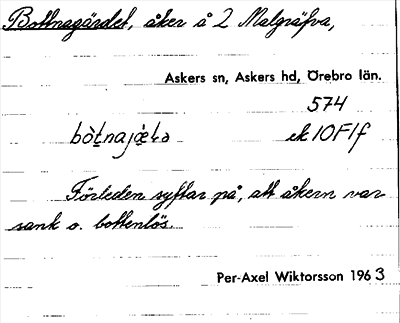 Bottnagärdet, åker å 2 Malgräfva,
Askers sn, Askers hd, Örebro län.
574
bòtnajæ̀ɽə ek 10F1f
Förleden syftar på, att åkern var
sank o. bottenlös.
Per-Axel Wiktorsson 1963